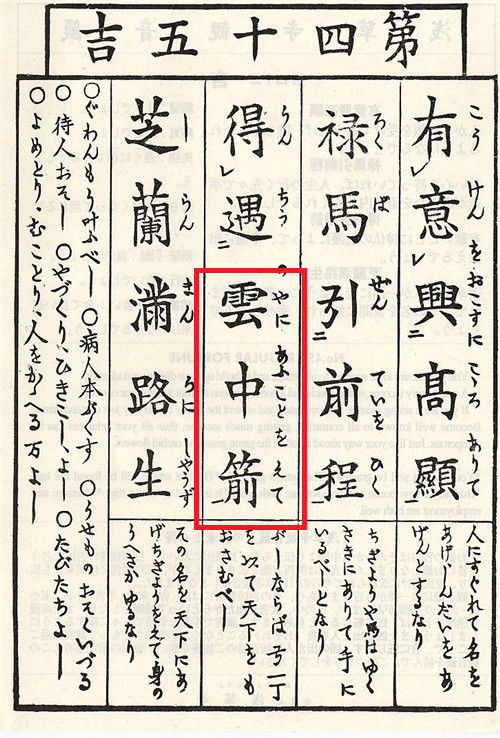 第四十五吉
有意興高顯
こうけんをおこすにこころあり
禄馬引前程
ろくばせんていをひ
得遇雲中箭
うんちうのやにあふことをえて
芝蘭滿路生
しらんまんろにしやうず
人にすぐれて名を
あげんとするなり
ちぎようや馬はゆく
さきにありて手に
いるべしとなり
を以天下をも
おさむべし
その名を天下にあ
げちぎようもえて身の
うへさかゆるなり
○ぐわんもう叶ふべし ○病人本ぷくす ○うせものおそくいづる
○待人おそし ○やづくり、ひきこし、よし ○たびたちよし
○よめとり、むことり、人をかゝへる万よし